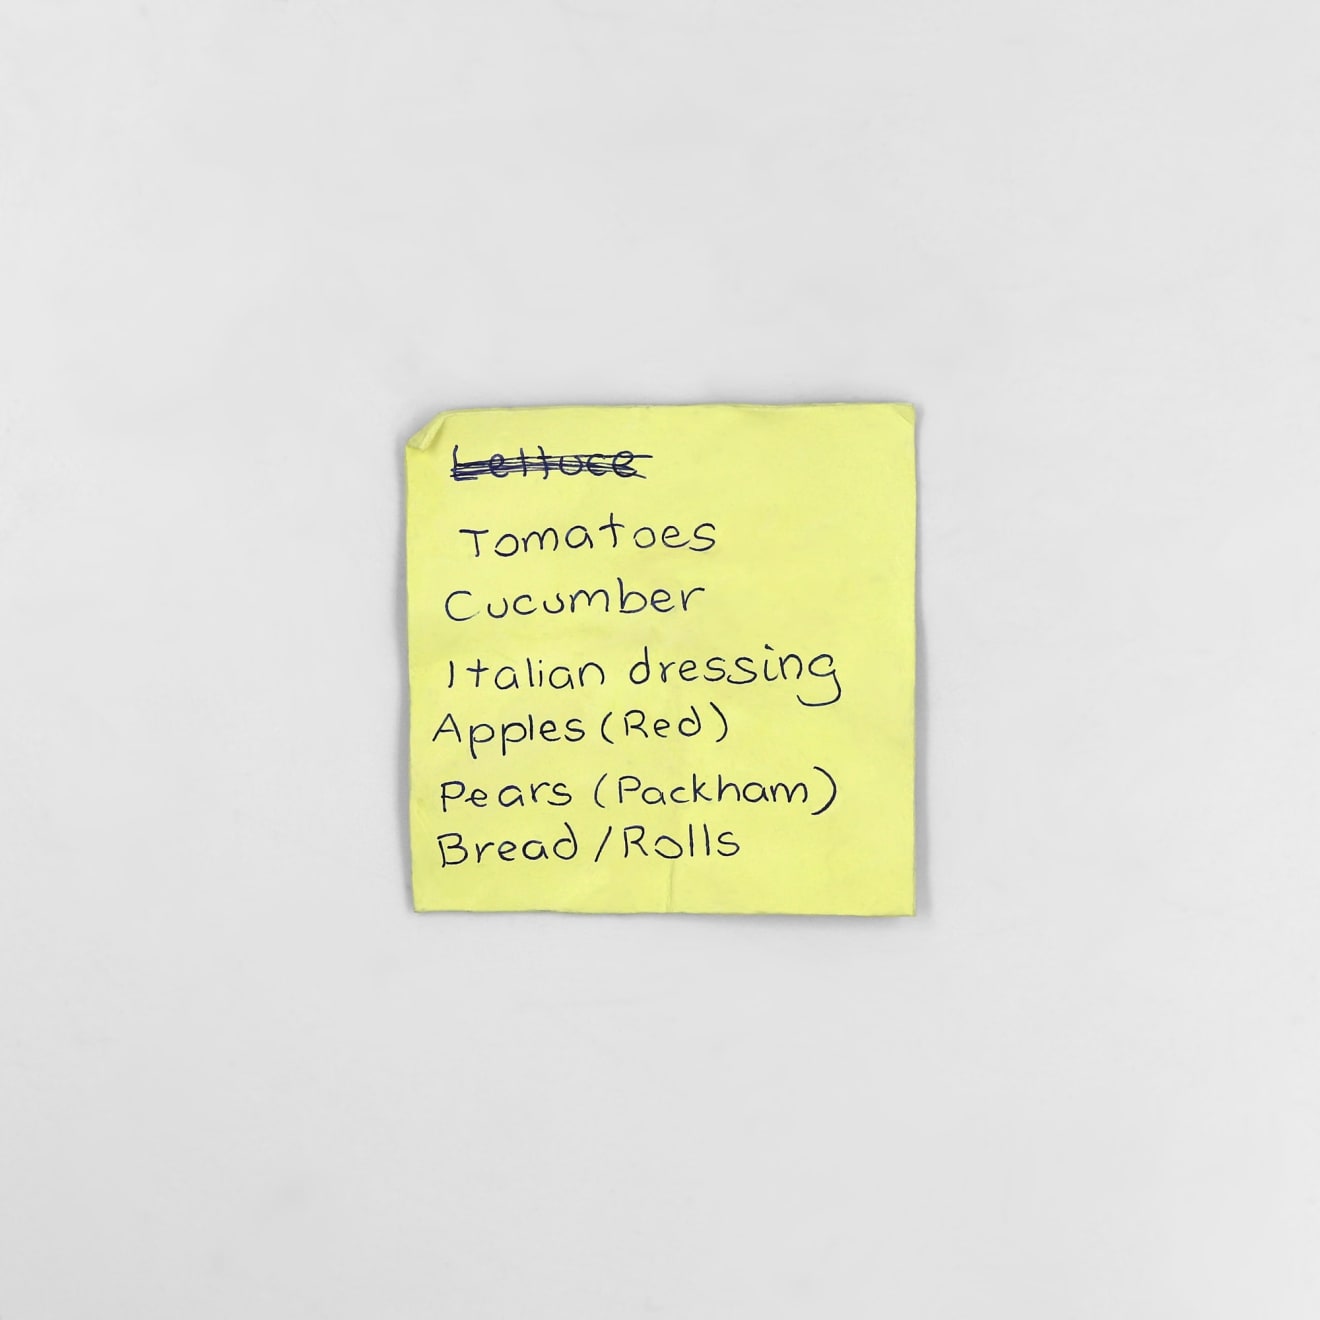 Lettuce
Tomatoes
Cucumber
Italian dressing
Apples (Red)
Pears (Packham)
Bread / Rolls